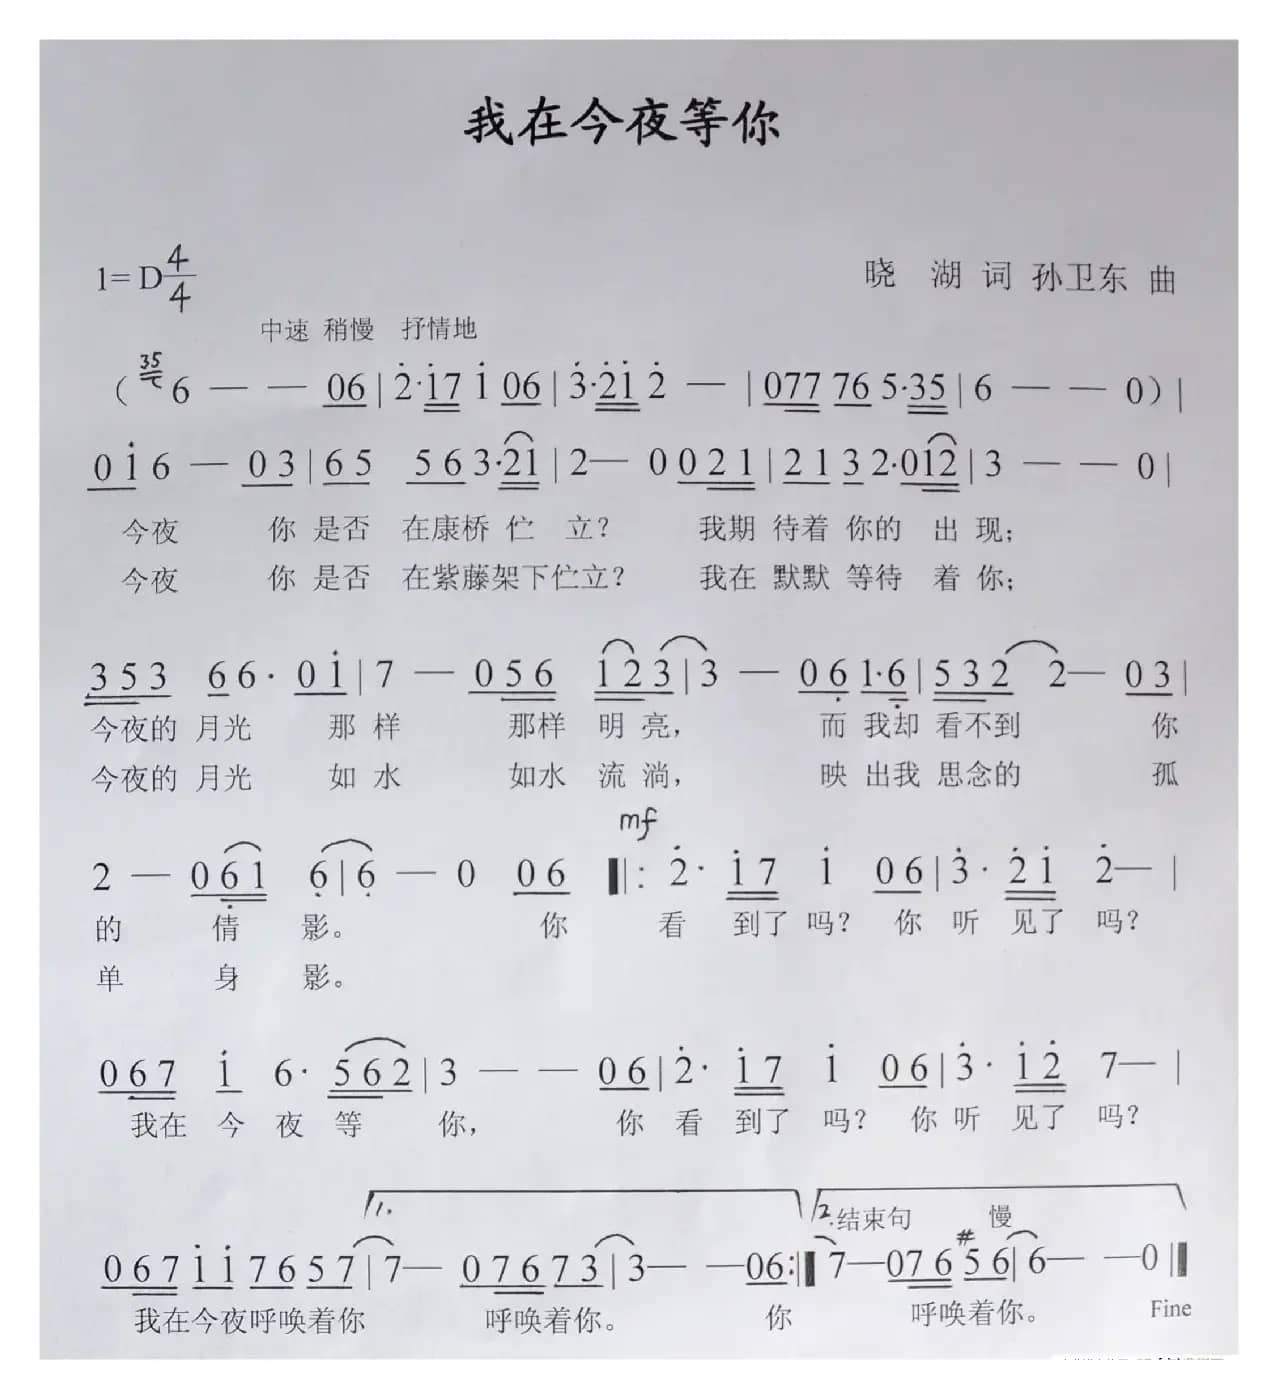 我在今夜等你
1=D 4/4
晓 湖 词 孙卫东 曲
中速 稍慢 抒情地
( 35 6 — — 06 | 2̇·1̇7 1̇ 06 | 3̇·2̇1̇ 2̇ — | 077 76 5·35 | 6 — — 0 ) |
0 1̇ 6 — 0 3 | 6 5 5 6 3·21 | 2— 0 0 2 1 | 2 1 3 2·012 | 3 — — 0 |
今夜 你 是否 在康桥 伫 立? 我期 待着 你的 出 现;
今夜 你 是否 在紫藤架下伫立? 我在 默默 等待 着 你;
3 5 3 6 6· 0 1̇ | 7 — 0 5 6 1 2 3 | 3 — 0 6̣ 1·6̣ | 5 3 2 2— 0 3 |
今夜的 月光 那 样 那样 明 亮, 而 我却 看不到 你
今夜的 月光 如 水 如水 流 淌, 映 出我 思念的 孤
mf
2 — 0 6̣ 1 6̣ | 6̣ — 0 0 6 ‖: 2̇· 1̇ 7 1̇ 0 6 | 3̇· 2̇ 1̇ 2̇— |
的 倩 影。 你 看 到了 吗? 你 听 见了 吗?
单 身 影。
0 6 7 1̇ 6· 5 6 2 | 3 — — 0 6 | 2̇· 1̇ 7 1̇ 0 6 | 3̇· 1̇ 2̇ 7— |
我在 今 夜 等 你, 你 看 到了 吗? 你 听 见了 吗?
1. 2. 结束句 慢
0 6 7 1̇ 1̇ 7 6 5 7 | 7— 0 7 6 7 3 | 3— —06 :‖ 7—07 6 #5 6 | 6— —0 ‖
我在今夜呼唤着你 呼唤着你。 你 呼唤着你。 Fine